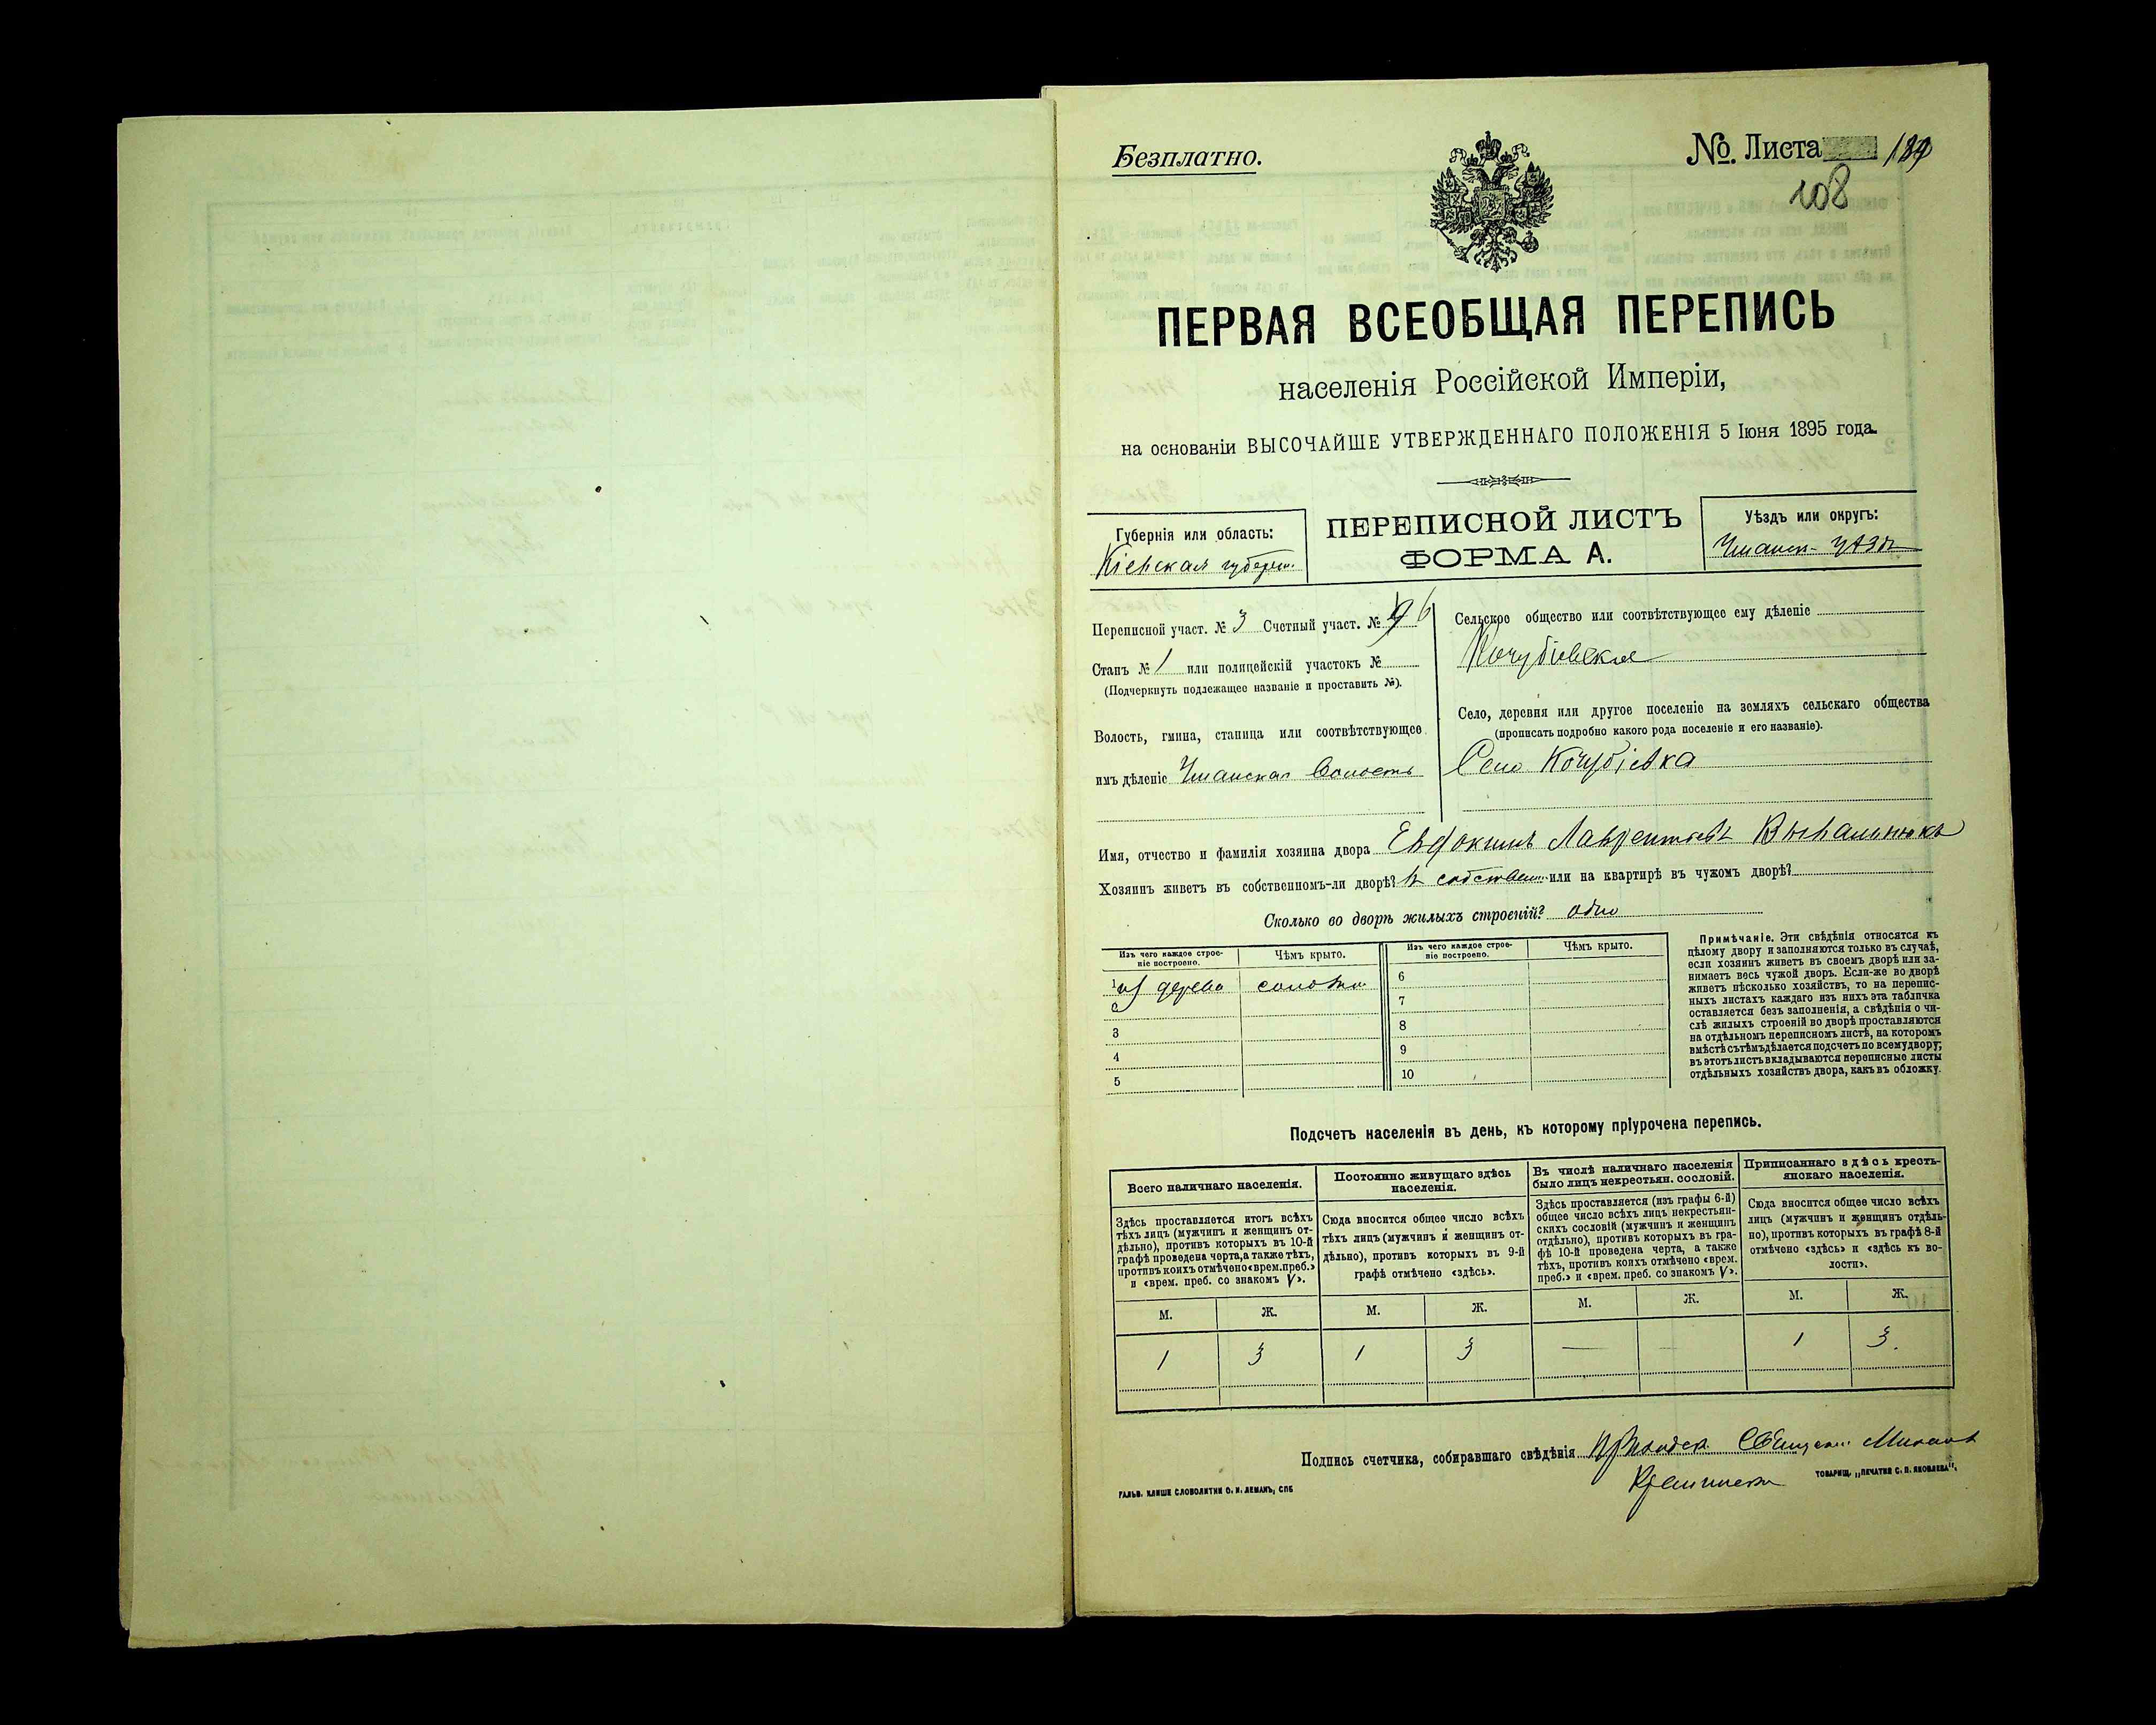 Безплатно.
№. Листа 189
108
ПЕРВАЯ ВСЕОБЩАЯ ПЕРЕПИСЬ
населенія Россійской Имперіи,
на основаніи ВЫСОЧАЙШЕ УТВЕРЖДЕННАГО ПОЛОЖЕНІЯ 5 Іюня 1895 года.
Губернія или область:
Кіевская губерн.
ПЕРЕПИСНОЙ ЛИСТЪ
ФОРМА А.
Уѣздъ или округъ:
Уманск- уѣздъ
Переписной участ. № 3 Счетный участ. № 6
Станъ № 1 или полицейскій участокъ №
(Подчеркнуть подлежащее названіе и проставить №).
Волость, гмина, станица или соотвѣтствующее
имъ дѣленіе Уманская Волость
Сельское общество или соотвѣтствующее ему дѣленіе
Кочубіевское
Село, деревня или другое поселеніе на земляхъ сельскаго общества
(прописать подробно какого рода поселеніе и его названіе).
Село Кочубіевка
Имя, отчество и фамилія хозяина двора Евдокимъ Лаврентьевъ
Хозяинъ живетъ въ собственномъ-ли дворѣ? въ собствен. или на квартирѣ въ чужомъ дворѣ?
Сколько во дворѣ жилыхъ строеній? одно
Изъ чего каждое строеніе построено.
Чѣмъ крыто.
Изъ чего каждое строеніе построено.
Чѣмъ крыто.
1 изъ дерева соломою
2
3
4
5
6
7
8
9
10
Примѣчаніе. Эти свѣдѣнія относятся къ
цѣлому двору и заполняются только въ случаѣ,
если хозяинъ живетъ въ своемъ дворѣ или за-
нимаетъ весь чужой дворъ. Если-же во дворѣ
живетъ нѣсколько хозяйствъ, то на перепис-
ныхъ листахъ каждаго изъ нихъ эта табличка
оставляется безъ заполненія, а свѣдѣнія о чи-
слѣ жилыхъ строеній во дворѣ проставляются
на отдѣльномъ переписномъ листѣ, на которомъ
вмѣстѣ съ тѣмъ дѣлается подсчетъ по всему двору;
въ этотъ листъ вкладываются переписные листы
отдѣльныхъ хозяйствъ двора, какъ въ обложку.
Подсчетъ населенія въ день, къ которому пріурочена перепись.
Всего наличнаго населенія.
Постоянно живущаго здѣсь
населенія.
Въ числѣ наличнаго населенія
было лицъ некрестьян. сословій.
Приписаннаго здѣсь кресть-
янскаго населенія.
Здѣсь проставляется итогъ всѣхъ
тѣхъ лицъ (мужчинъ и женщинъ от-
дѣльно), противъ которыхъ въ 10-й
графѣ проведена черта, а также тѣхъ,
противъ коихъ отмѣчено «врем. преб.»
и «врем. преб. со знакомъ V».
Сюда вносится общее число всѣхъ
тѣхъ лицъ (мужчинъ и женщинъ от-
дѣльно), противъ которыхъ въ 9-й
графѣ отмѣчено «здѣсь».
Здѣсь проставляется (изъ графы 6-й)
общее число всѣхъ лицъ некрестьян-
скихъ сословій (мужчинъ и женщинъ
отдѣльно), противъ которыхъ въ гра-
фѣ 10-й проведена черта, а также
тѣхъ, противъ коихъ отмѣчено «врем.
преб.» и «врем. преб. со знакомъ V».
Сюда вносится общее число всѣхъ
лицъ (мужчинъ и женщинъ отдѣль-
но), противъ которыхъ въ графѣ 8-й
отмѣчено «здѣсь» и «здѣсь въ во-
лости».
М. Ж. М. Ж. М. Ж. М. Ж.
1 3 1 3 — — 1 3.
Подпись счетчика, собиравшаго свѣдѣнія
ГАЛЬВ. КЛИШЕ СЛОВОЛИТНИ О. И. ЛЕМАНЪ, СПБ
ТОВАРИЩ. „ПЕЧАТНЯ С. П. ЯКОВЛЕВА".